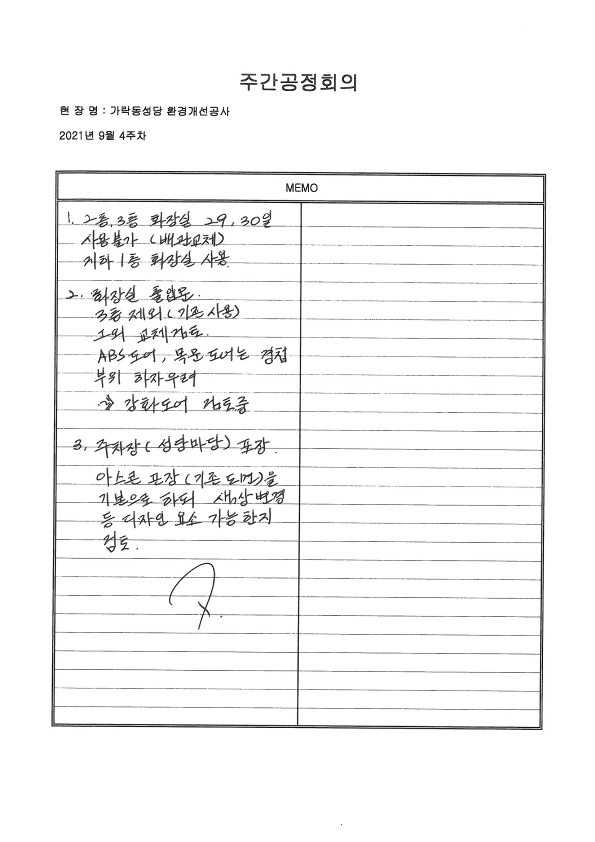 주간공정회의
현 장 명 : 가락동성당 환경개선공사
2021년 9월 4주차
MEMO
1. 2층, 3층 화장실 29, 30일
사용불가 (배관교체)
지하 1층 화장실 사용.
2. 화장실 출입문.
3층 제외 (기존 사용)
그외 교체검토.
ABS도어, 목문 도어는 경첩
부위 하자우려
⇒ 강화도어 검토중
3. 주차장 (성당마당) 포장.
아스콘 포장 (기존 도면)을
기본으로 하되 색상변경
등 디자인 요소 가능한지
검토.